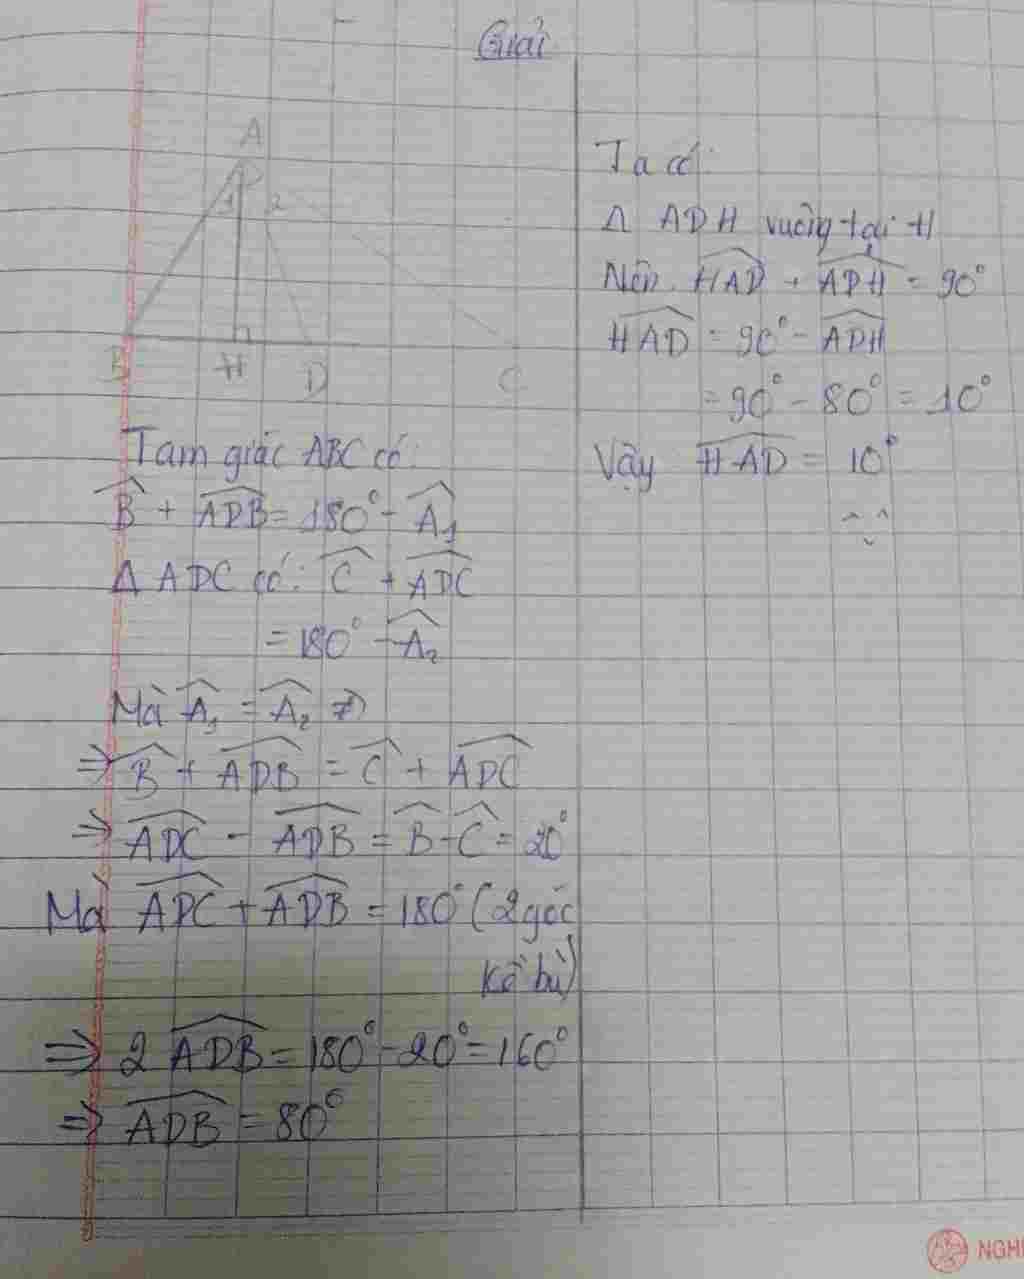 Giải
A
1 2
B H D C
Tam giác ABC có:
B̂ + ADB̂ = 180° - Â₁
Δ ADC có: Ĉ + ADĈ
= 180° - Â₂
Mà Â₁ = Â₂
⇒ B̂ + ADB̂ = Ĉ + ADĈ
⇒ ADĈ - ADB̂ = B̂ - Ĉ = 20°
Mà ADĈ + ADB̂ = 180° (2 góc
kề bù)
⇒ 2 ADB̂ = 180° - 20° = 160°
⇒ ADB̂ = 80°
Ta có:
Δ ADH vuông tại H
Nên HAD̂ + ADĤ = 90°
HAD̂ = 90° - ADĤ
= 90° - 80° = 10°
Vậy HAD̂ = 10°